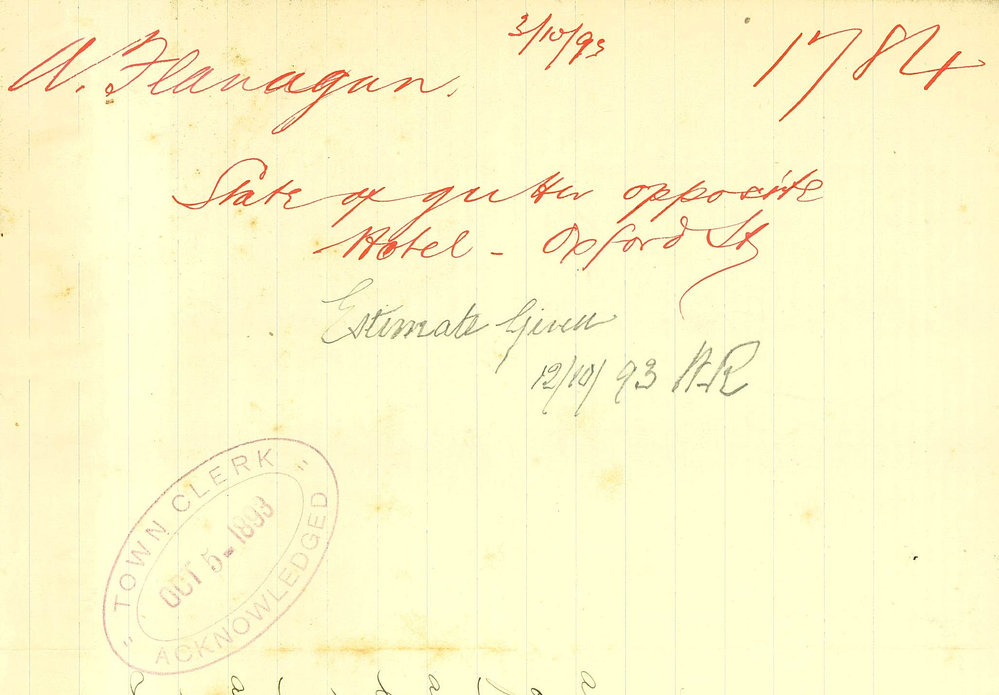 W. Flanagan.
3/10/93
1784
State of gutter opposite
Hotel - Oxford St
Estimate Given
12/10/93 AR
" TOWN CLERK "
OCT 5 - 1893
ACKNOWLEDGED